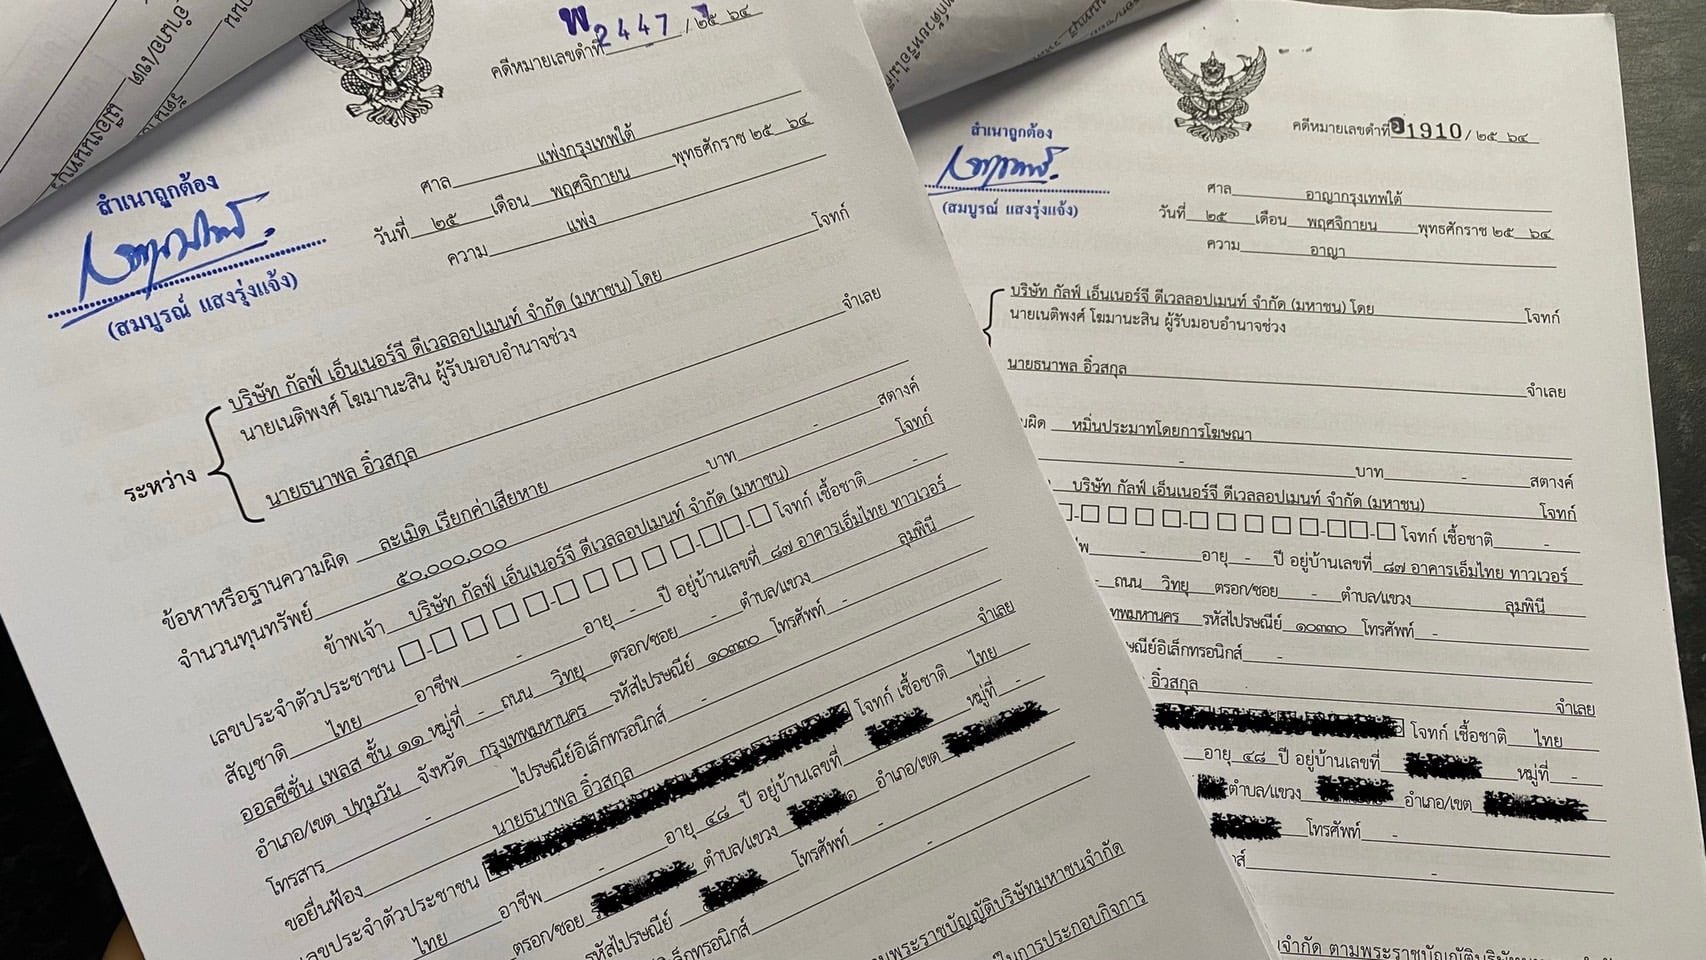 พ 2447 / ๒๕ ๖๔
คดีหมายเลขดำที่
สำเนาถูกต้อง
(สมบูรณ์ แสงรุ่งแจ้ง)
ศาล แพ่งกรุงเทพใต้
วันที่ ๒๕ เดือน พฤศจิกายน พุทธศักราช ๒๕ ๖๔
ความ แพ่ง
บริษัท กัลฟ์ เอ็นเนอร์จี ดีเวลลอปเมนท์ จำกัด (มหาชน) โดย โจทก์
นายเนติพงศ์ โฆมานะสิน ผู้รับมอบอำนาจช่วง
ระหว่าง
นายธนาพล อิ๋วสกุล จำเลย
ข้อหาหรือฐานความผิด ละเมิด เรียกค่าเสียหาย
จำนวนทุนทรัพย์ ๕๐,๐๐๐,๐๐๐ บาท - สตางค์
ข้าพเจ้า บริษัท กัลฟ์ เอ็นเนอร์จี ดีเวลลอปเมนท์ จำกัด (มหาชน) โจทก์
เลขประจำตัวประชาชน โจทก์ เชื้อชาติ -
สัญชาติ ไทย อาชีพ - อายุ - ปี อยู่บ้านเลขที่ ๘๗ อาคารเอ็มไทย ทาวเวอร์
ออลซีซั่น เพลส ชั้น ๑๑ หมู่ที่ - ถนน วิทยุ ตรอก/ซอย - ตำบล/แขวง ลุมพินี
อำเภอ/เขต ปทุมวัน จังหวัด กรุงเทพมหานคร รหัสไปรษณีย์ ๑๐๓๓๐ โทรศัพท์ -
โทรสาร - ไปรษณีย์อิเล็กทรอนิกส์ -
ขอยื่นฟ้อง นายธนาพล อิ๋วสกุล จำเลย
เลขประจำตัวประชาชน โจทก์ เชื้อชาติ ไทย
ไทย อาชีพ - อายุ ๔๘ ปี อยู่บ้านเลขที่ หมู่ที่ -
ตรอก/ซอย ตำบล/แขวง อำเภอ/เขต
รหัสไปรษณีย์ โทรศัพท์ -
อิเล็กทรอนิกส์ -
ตามพระราชบัญญัติบริษัทมหาชนจำกัด
ในการประกอบกิจการ
คดีหมายเลขดำที่ อ1910 / ๒๕ ๖๔
สำเนาถูกต้อง
(สมบูรณ์ แสงรุ่งแจ้ง)
ศาล อาญากรุงเทพใต้
วันที่ ๒๕ เดือน พฤศจิกายน พุทธศักราช ๒๕ ๖๔
ความ อาญา
บริษัท กัลฟ์ เอ็นเนอร์จี ดีเวลลอปเมนท์ จำกัด (มหาชน) โดย โจทก์
นายเนติพงศ์ โฆมานะสิน ผู้รับมอบอำนาจช่วง
นายธนาพล อิ๋วสกุล จำเลย
ผิด หมิ่นประมาทโดยการโฆษณา
- บาท - สตางค์
บริษัท กัลฟ์ เอ็นเนอร์จี ดีเวลลอปเมนท์ จำกัด (มหาชน) โจทก์
โจทก์ เชื้อชาติ -
- อายุ - ปี อยู่บ้านเลขที่ ๘๗ อาคารเอ็มไทย ทาวเวอร์
- ถนน วิทยุ ตรอก/ซอย - ตำบล/แขวง ลุมพินี
เทพมหานคร รหัสไปรษณีย์ ๑๐๓๓๐ โทรศัพท์ -
ษณีย์อิเล็กทรอนิกส์ -
อิ๋วสกุล จำเลย
โจทก์ เชื้อชาติ ไทย
อายุ ๔๘ ปี อยู่บ้านเลขที่ หมู่ที่ -
ตำบล/แขวง อำเภอ/เขต
โทรศัพท์ -
-
จำกัด ตามพระราชบัญญัติบริษัท